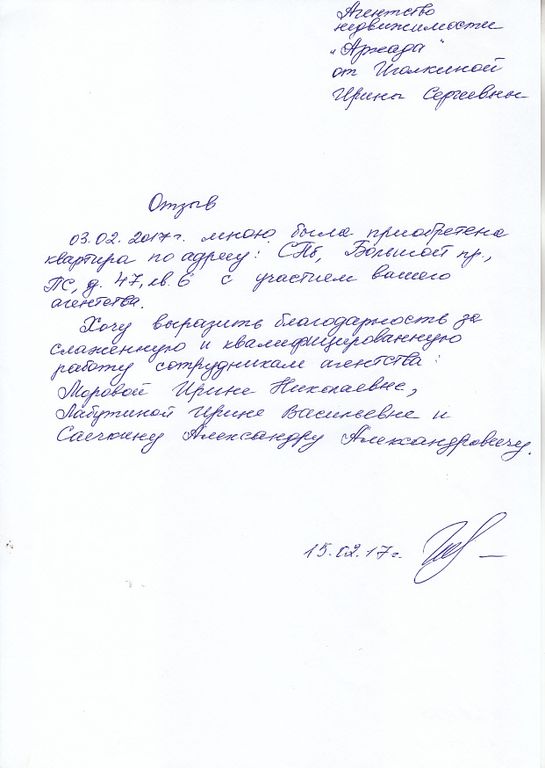 Агентство
недвижимости
„Аркада"
от Иголкиной
Ирины Сергеевны
Отзыв
03.02.2017г. мною была приобретена
квартира по адресу: СПб, Большой пр.,
ПС, д. 47, кв. 6 с участием вашего
агентства.
Хочу выразить благодарность за
слаженную и квалифицированную
работу сотрудникам агентства:
Моровой Ирине Николаевне,
Лабутиной Ирине Васильевне и
Саечкину Александру Александровичу.
15.02.17г.